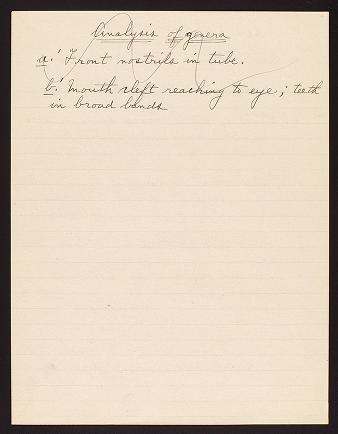 Analysis of genera
a.' Front nostrils in tube.
b.' Mouth cleft reaching to eye; teeth
in broad bands